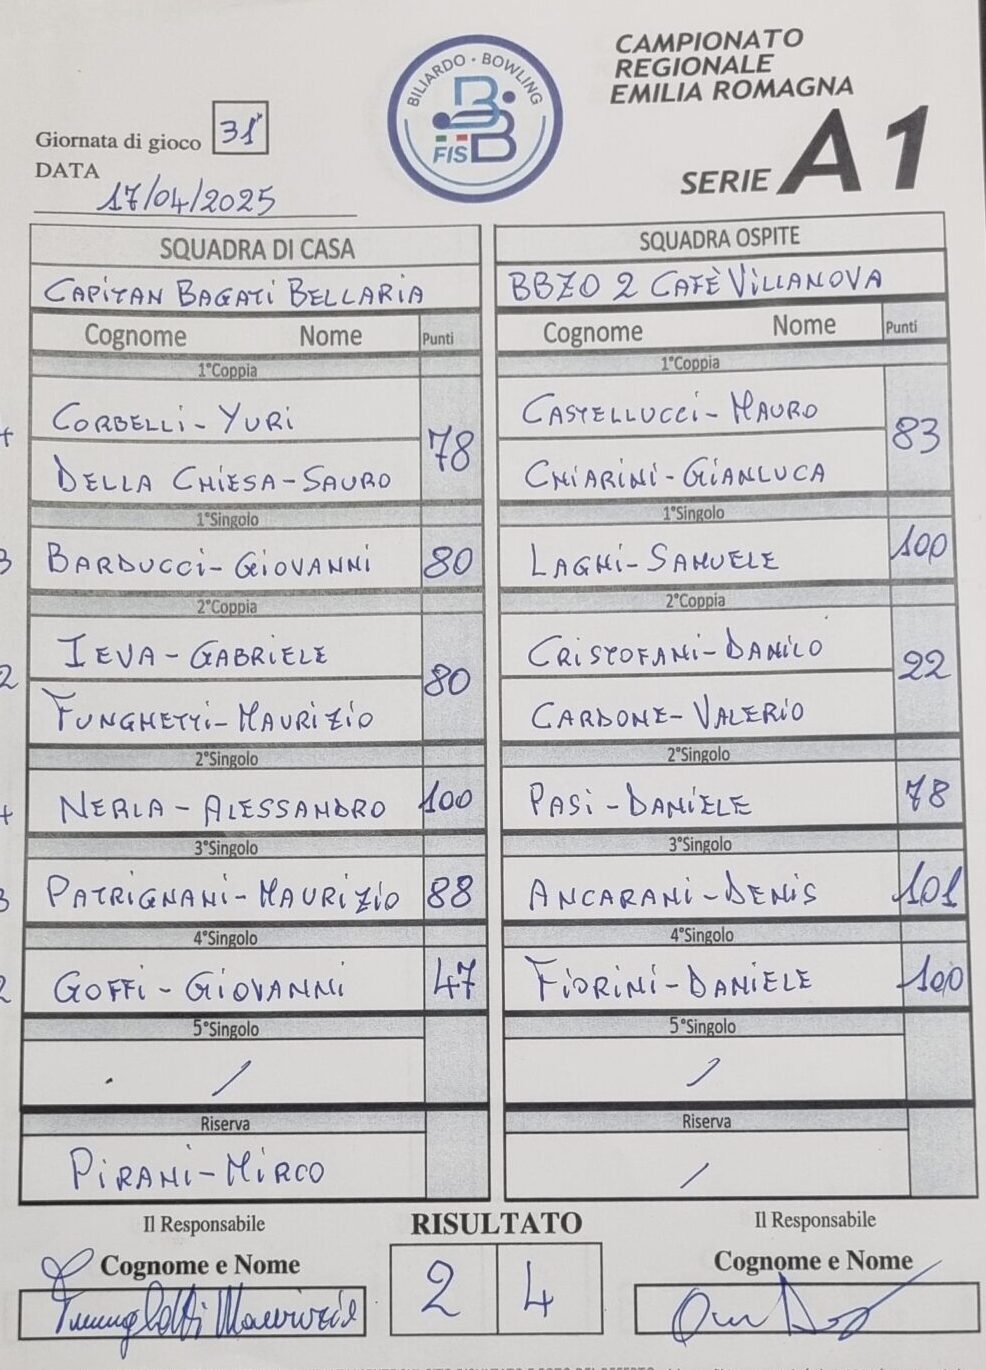 CAMPIONATO
REGIONALE
EMILIA ROMAGNA
SERIE A1
BILIARDO · BOWLING
FISBB
Giornata di gioco 31ª
DATA
17/04/2025
SQUADRA DI CASA
CAPITAN BAGATI BELLARIA
Cognome Nome Punti
1°Coppia
CORBELLI - YURI
DELLA CHIESA - SAURO
78
1°Singolo
BARDUCCI - GIOVANNI 80
2°Coppia
IEVA - GABRIELE
FUNGHETTI - MAURIZIO
80
2°Singolo
NERLA - ALESSANDRO 100
3°Singolo
PATRIGNANI - MAURIZIO 88
4°Singolo
GOFFI - GIOVANNI 47
5°Singolo
/
Riserva
PIRANI - MIRCO
SQUADRA OSPITE
BBZO 2 CAFÈ VILLANOVA
Cognome Nome Punti
1°Coppia
CASTELLUCCI - MAURO
CHIARINI - GIANLUCA
83
1°Singolo
LAGHI - SAMUELE 100
2°Coppia
CRISTOFANI - DANILO
CARDONE - VALERIO
22
2°Singolo
PASI - DANIELE 78
3°Singolo
ANCARANI - DENIS 101
4°Singolo
FIORINI - DANIELE 100
5°Singolo
/
Riserva
/
Il Responsabile
Cognome e Nome
Funghetti Maurizio
RISULTATO
2 4
Il Responsabile
Cognome e Nome